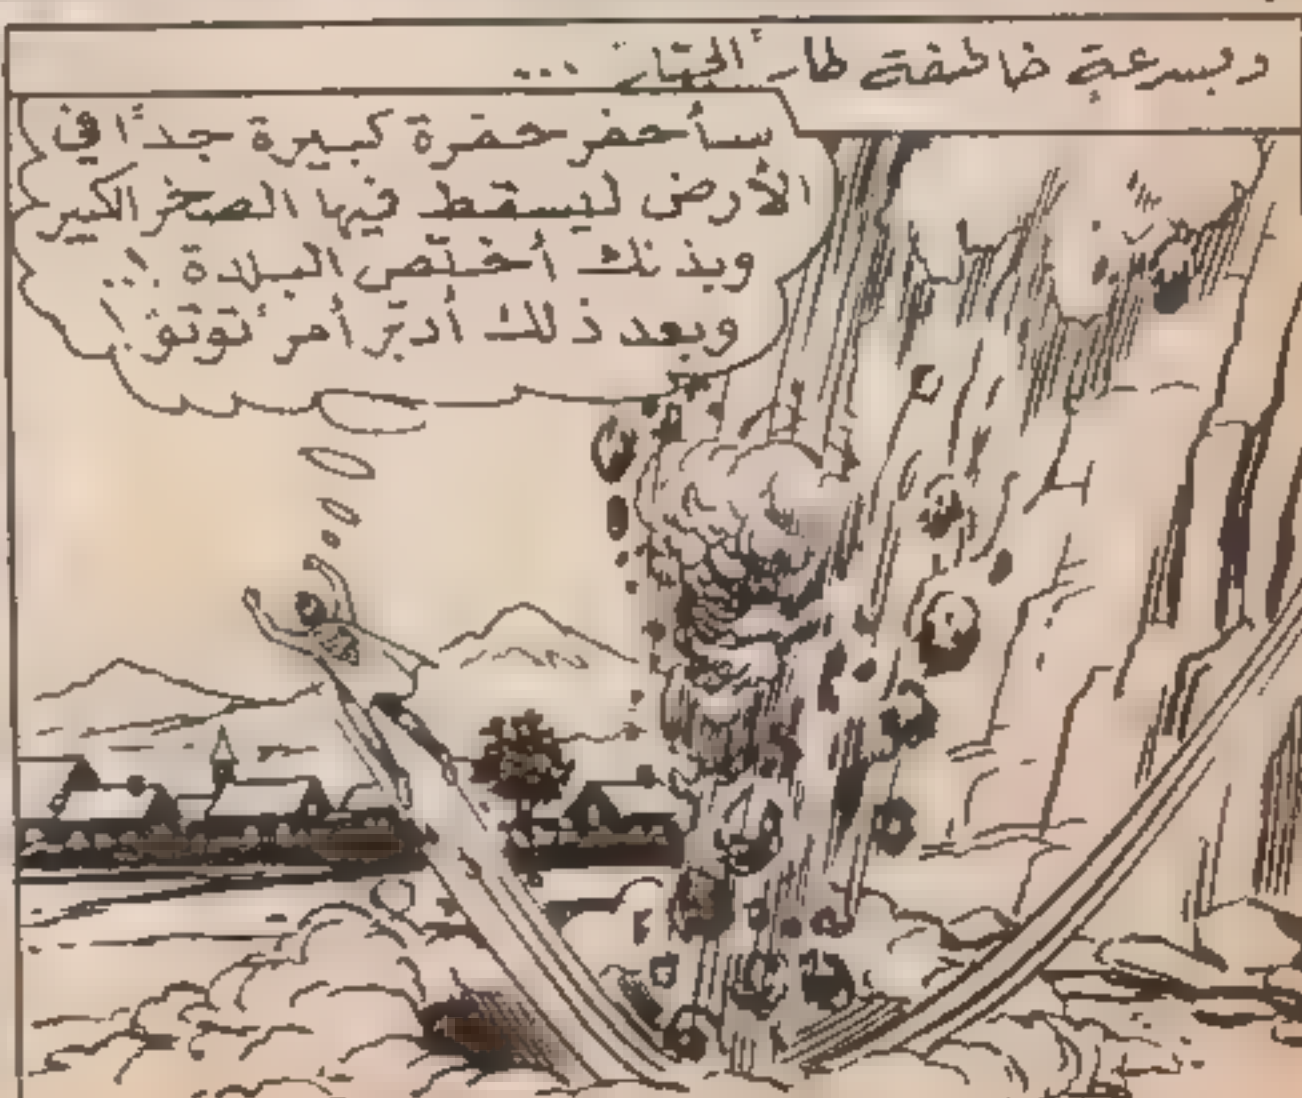 وبسرعةٍ خاطفة طار الجبّار ...
سأحفر حفرة كبيرة جدًا في
الأرض ليسقط فيها الصخر الكبير
وبذلك أخلّص البلدة !..
وبعد ذلك أدبّر أمر توتو !